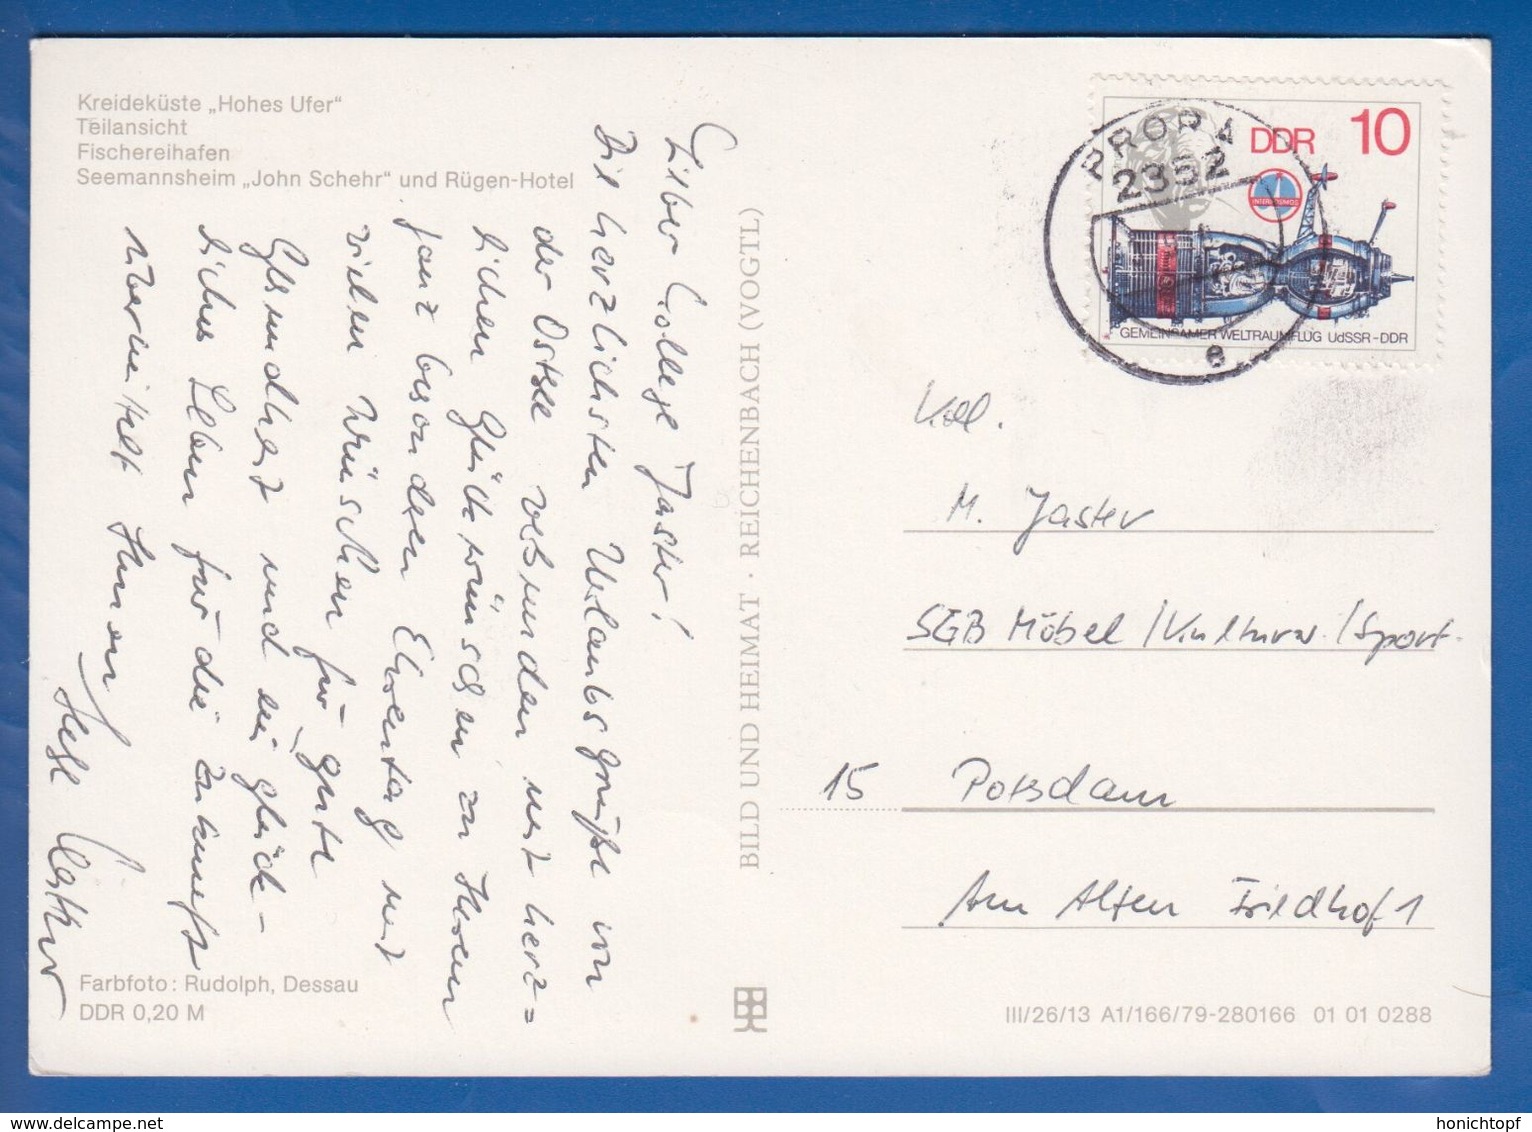 Kreideküste „Hohes Ufer“
Teilansicht
Fischereihafen
Seemannsheim „John Schehr“ und Rügen-Hotel
Lieber College Jaster!
Die herzlichsten Urlaubsgrüße von
der Ostsee verbunden mit herz=
lichen Glückwünschen zu Ihrem
ganz besonderen Ehrentag mit
vielen Wünschen für gute
Gesundheit und ein glück-
liches Leben für die Zukunft
übermittelt Ihnen
Farbfoto: Rudolph, Dessau
DDR 0,20 M
BILD UND HEIMAT · REICHENBACH (VOGTL)
PRORA
2352
e
DDR 10
INTERKOSMOS
GEMEINSAMER WELTRAUMFLUG UdSSR-DDR
Koll.
M. Jaster
SGB Möbel/Kulturw./Sport.
15 Potsdam
Am Alten Friedhof 1
III/26/13 A1/166/79-280166 01 01 0288
www.delcampe.net
honichtopf